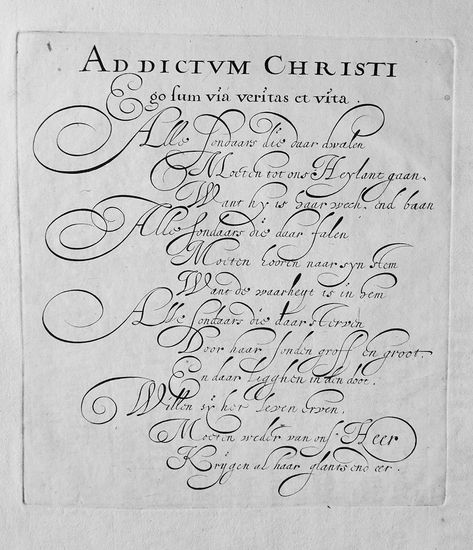 AD DICTVM CHRISTI
Ego sum via veritas et vita.
Alle sondaars die daar dwalen
Moeten tot ons Heylant gaan,
Want hy is haar wech, end baan
Alle sondaars die daar falen
Moeten hooren naar syn stem
Want de waarheyt is in hem
Alle sondaars die daar sterven
Door haar sonden groff en groot,
En daar ligghen in den doot.
Willen sy het leven erven,
Moeten weder van ons Heer
Krygen al haar glants end eer.